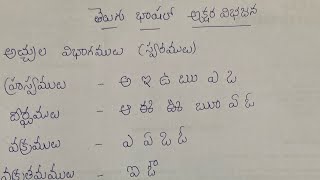 తెలుగు భాషలో అక్షర విభజన
అచ్చుల విభాగములు (స్వరములు)
హ్రస్వములు - అ ఇ ఉ ఋ ఎ ఒ
దీర్ఘములు - ఆ ఈ ఊ ౠ ఏ ఓ
వక్రములు - ఎ ఏ ఒ ఓ
వక్రతమములు - ఐ ఔ